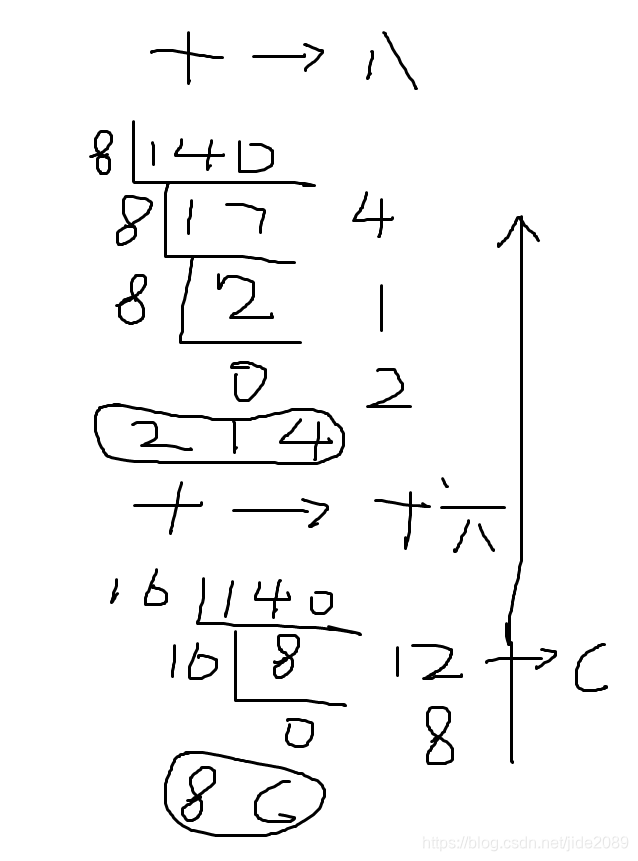 十 → 八
8 140
8 17 4
8 2 1
0 2
2 1 4
十 → 十六
16 140
16 8 12 → C
0 8
8 C
https://blog.csdn.net/jide2089